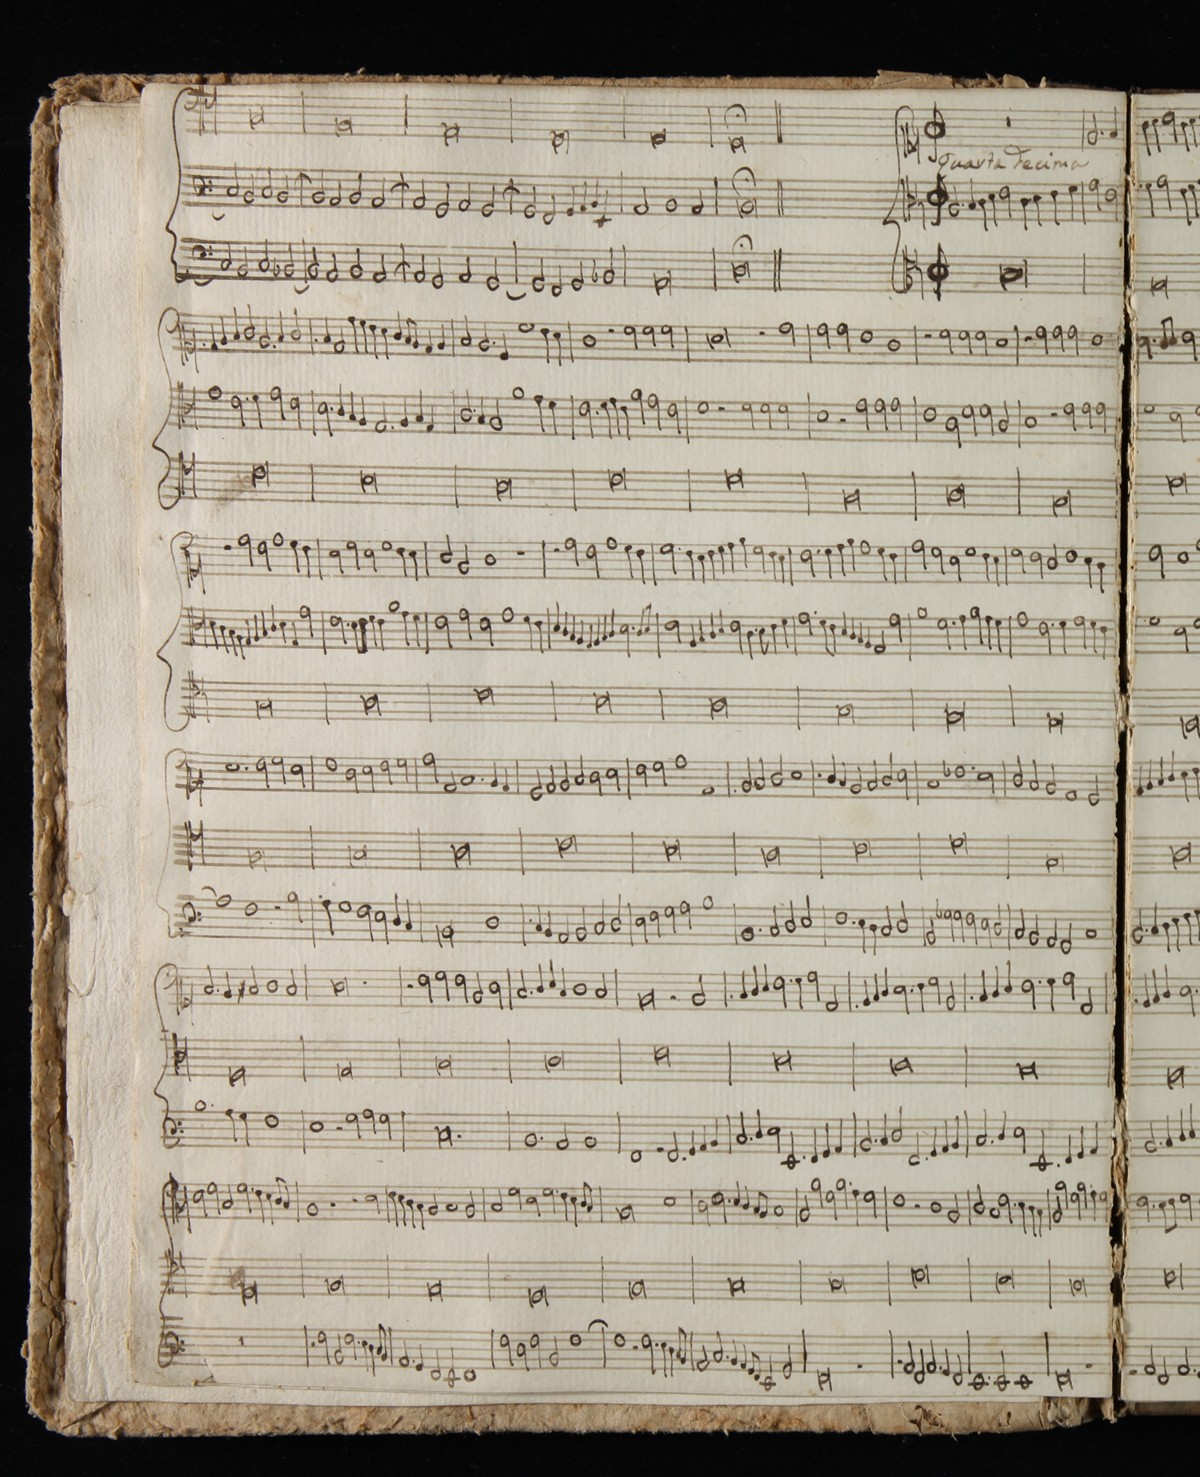 Quarta Decima